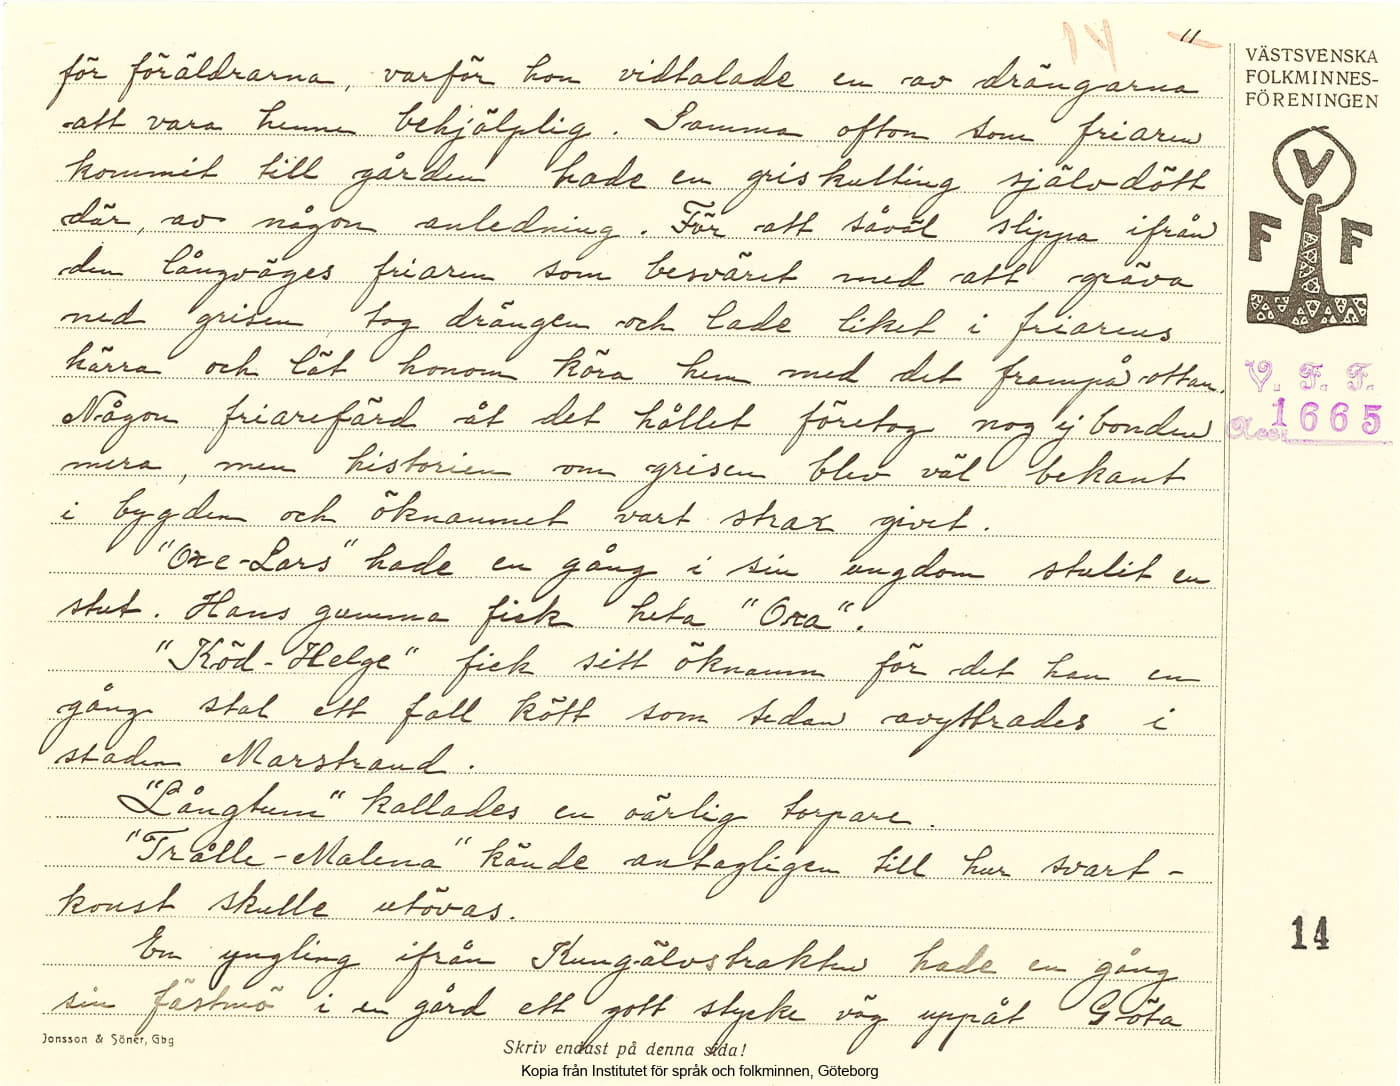 14 11
för föräldrarna, varför hon vidtalade en av drängarna
att vara henne behjälplig. Samma afton som friaren
kommit till gården hade en griskulting självdött
där, av någon anledning. För att såväl slippa ifrån
den långväges friaren som besväret med att gräva
ned grisen, tog drängen och lade liket i friarens
kärra och lät honom köra hem med det frampå ottan.
Någon friarefärd åt det hållet företog nog ej bonden
mera, men historien om grisen blev väl bekant
i bygden och öknamnet vart strax givet.
"Oxe-Lars" hade en gång i sin ungdom stulit en
stut. Hans gumma fick heta "Oxa".
"Köd-Helge" fick sitt öknamn för det han en
gång stal ett fall kött som sedan avyttrades i
staden Marstrand.
"Långtum" kallades en oärlig torpare.
"Trålle-Malena" kände antagligen till hur svart-
konst skulle utövas.
En yngling ifrån Kungälvstrakten hade en gång
sin fästmö i en gård ett gott stycke väg uppåt Göta
VÄSTSVENSKA
FOLKMINNES-
FÖRENINGEN
V
F F
V. F. F.
Acc. 1665
14
Jonsson & Söner, Gbg
Skriv endast på denna sida!
Kopia från Institutet för språk och folkminnen, Göteborg